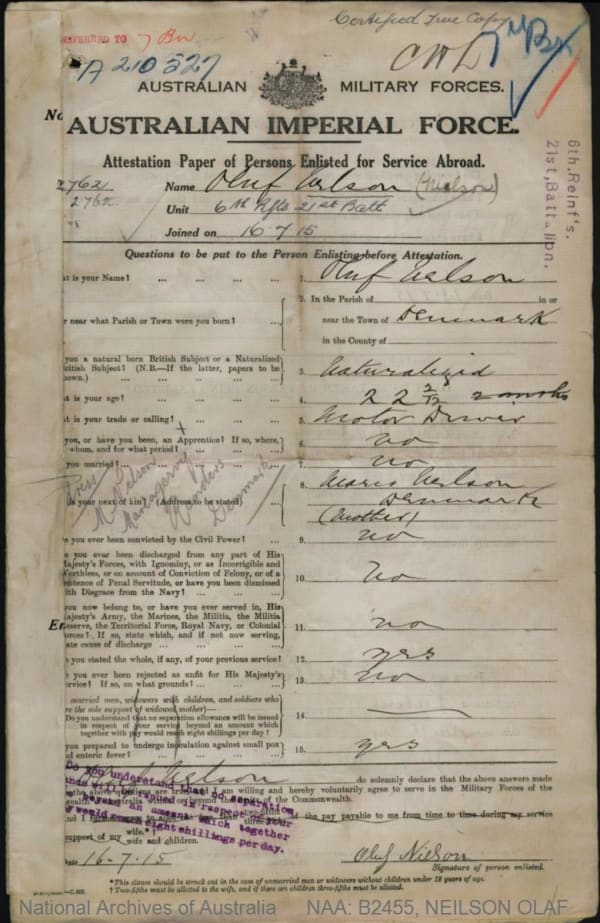 Certified True Copy
REFERRED TO 7 Bn
A 210527
7 Bn
AUSTRALIAN MILITARY FORCES.
AUSTRALIAN IMPERIAL FORCE.
Attestation Paper of Persons Enlisted for Service Abroad.
2762 Name Oluf Neilson (Nielson)
2762 Unit 6th Rfts 21st Batt
Joined on 16-7-15
6th. Reinf's.
21st. Battalion.
Questions to be put to the Person Enlisting before Attestation.
at is your Name? ... ... ... ... 1. Oluf Neilson
2. In the Parish of in or
r near what Parish or Town were you born? ... near the Town of Denmark
in the County of
you a natural born British Subject or a Naturalized
ritish Subject? (N.B.—If the latter, papers to be 3. Naturalized
own.) ... ... ... ...
at is your age? ... ... ... ... 4. 22 2/12 2 months
at is your trade or calling? ... ... 5. Motor Driver
you, or have you been, an Apprentice? If so, where,
whom, and for what period? ... ... 6. no
you married? ... ... ... ... 7. no
8. Marie Neilson
is your next of kin? (Address to be stated) ... Denmark
(Mother)
Randers
Denmark
e you ever been convicted by the Civil Power? ... 9. no
e you ever been discharged from any part of His
ajesty's Forces, with Ignominy, or as Incorrigible and
orthless, or on account of Conviction of Felony, or of a 10. No
entence of Penal Servitude, or have you been dismissed
ith Disgrace from the Navy? ... ...
you now belong to, or have you ever served in, His
ajesty's Army, the Marines, the Militia, the Militia
eserve, the Territorial Force, Royal Navy, or Colonial 11. no
orces? If so, state which, and if not now serving,
ate cause of discharge ... ... ...
you stated the whole, if any, of your previous service? 12. yes
you ever been rejected as unfit for His Majesty's 13. No
rvice? If so, on what grounds? ... ...
married men, widowers with children, and soldiers who
re the sole support of widowed mother)—
Do you understand that no separation allowance will be issued 14. —
in respect of your service beyond an amount which
together with pay would reach eight shillings per day?
you prepared to undergo inoculation against small pox
nd enteric fever? ... ... ... 15. yes
Oluf Neilson do solemnly declare that the above answers made
the above questions are true, I am willing and hereby voluntarily agree to serve in the Military Forces of the
Australia within or beyond the limits of the Commonwealth.
Do you understand that no separation
in respect of your
beyond an amount which together
would reach eight shillings per day.
the pay payable to me from time to time during my service
support of my wife.*†
wife and children.
16-7-15 Oluf Nielson
Signature of person enlisted.
*This clause should be struck out in the case of unmarried men or widowers without children under 18 years of age.
† Two-fifths must be allotted to the wife, and if there are children three-fifths must be allotted.
National Archives of Australia NAA: B2455, NEILSON OLAF